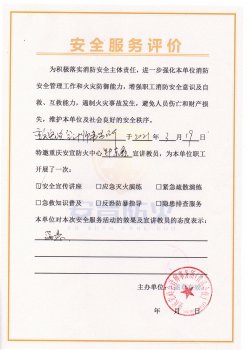 安全服务评价
为积极落实消防安全主体责任，进一步强化本单位消防
安全管理工作和火灾防御能力，增强职工消防安全意识及自
救、互救能力，遏制火灾事故发生，避免人员伤亡和财产损
失，维护本单位及社会良好的安全秩序。
于2021年3月19日
特邀重庆安宣防火中心 宣讲教员，为本单位职工
开展了一次：
☑安全宣传讲座 □应急灭火演练 □紧急疏散演练
□急救知识普及 □反消防暴恐导 □隐患排查服务
本单位对本次安全服务活动的效果及宣讲教员的态度表示：
满意
主办单位：
年 月 日